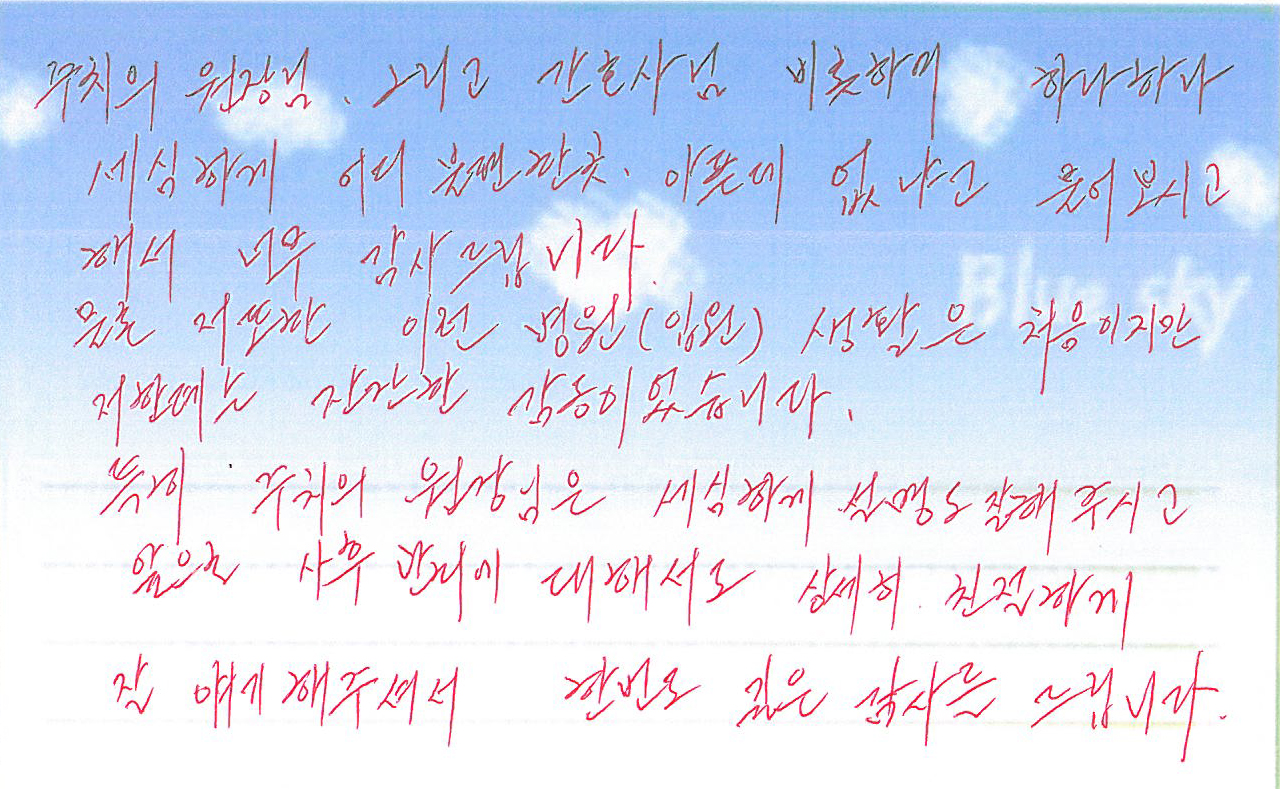 주치의 원장님, 그리고 간호사님 비롯하며 하나하나
세심하게 어디 불편한곳, 아픈데 없냐고 물어보시고
해서 너무 감사드립니다.
Blue sky
물론 저또한 이런 병원(입원) 생활은 처음이지만
저한테는 잔잔한 감동이었습니다.
특히 주치의 원장님은 세심하게 설명도 잘해주시고
앞으로 사후관리에 대해서도 상세히 친절하게
잘 얘기해주셔서 한번도 깊은 감사를 드립니다.